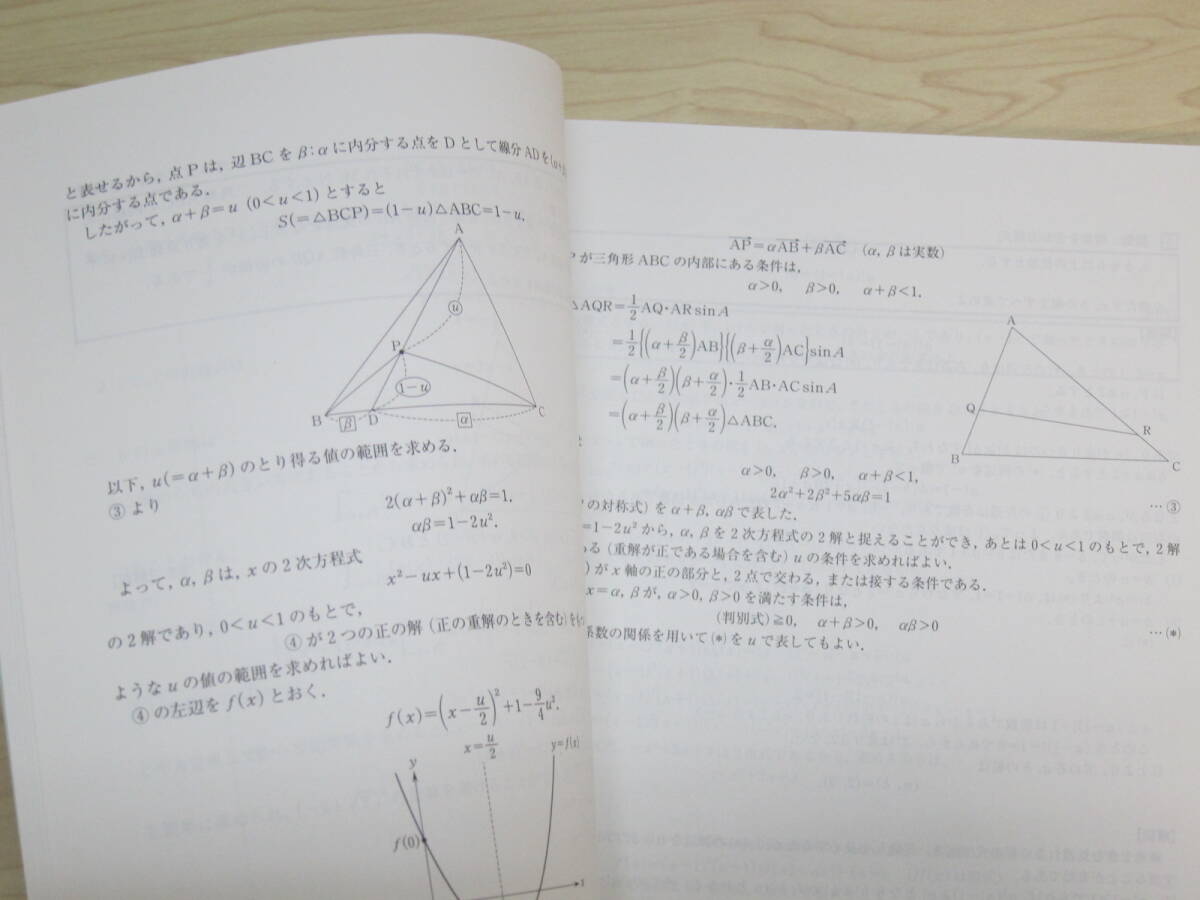 と表せるから，点Pは，辺BCを β：α に内分する点をDとして線分ADを(α+β)
に内分する点である．
したがって，α+β=u (0<u<1) とすると
S(=△BCP)=(1-u)△ABC=1-u.
A
u
P
1-u
B
β
D
α
C
以下，u(=α+β)のとり得る値の範囲を求める．
③より
2(α+β)²+αβ=1.
αβ=1-2u².
よって，α, βは，xの2次方程式
x²-ux+(1-2u²)=0
の2解であり，0<u<1のもとで，
④が2つの正の解（正の重解のときを含む）を
ようなuの値の範囲を求めればよい．
④の左辺をf(x)とおく．
f(x)=(x-u/2)²+1-9/4u².
x=u/2
y
y=f(x)
f(0)
AP→=αAB→+βAC→ (α, βは実数)
Pが三角形ABCの内部にある条件は，
α>0, β>0, α+β<1.
△AQR=1/2AQ・AR sin A
=1/2{(α+β/2)AB}{(β+α/2)AC}sin A
=(α+β/2)(β+α/2)・1/2AB・AC sin A
=(α+β/2)(β+α/2)△ABC.
A
Q
R
B
C
α>0, β>0, α+β<1,
2α²+2β²+5αβ=1 …③
の対称式）をα+β, αβで表した．
=1-2u²から，α, βを2次方程式の2解と捉えることができ，あとは0<u<1のもとで，2解
ある（重解が正である場合を含む）uの条件を求めればよい．
)がx軸の正の部分と，2点で交わる，または接する条件である．
x=α, βが，α>0, β>0を満たす条件は，
(判別式)≧0, α+β>0, αβ>0 …(*)
係数の関係を用いて(*)をuで表してもよい．